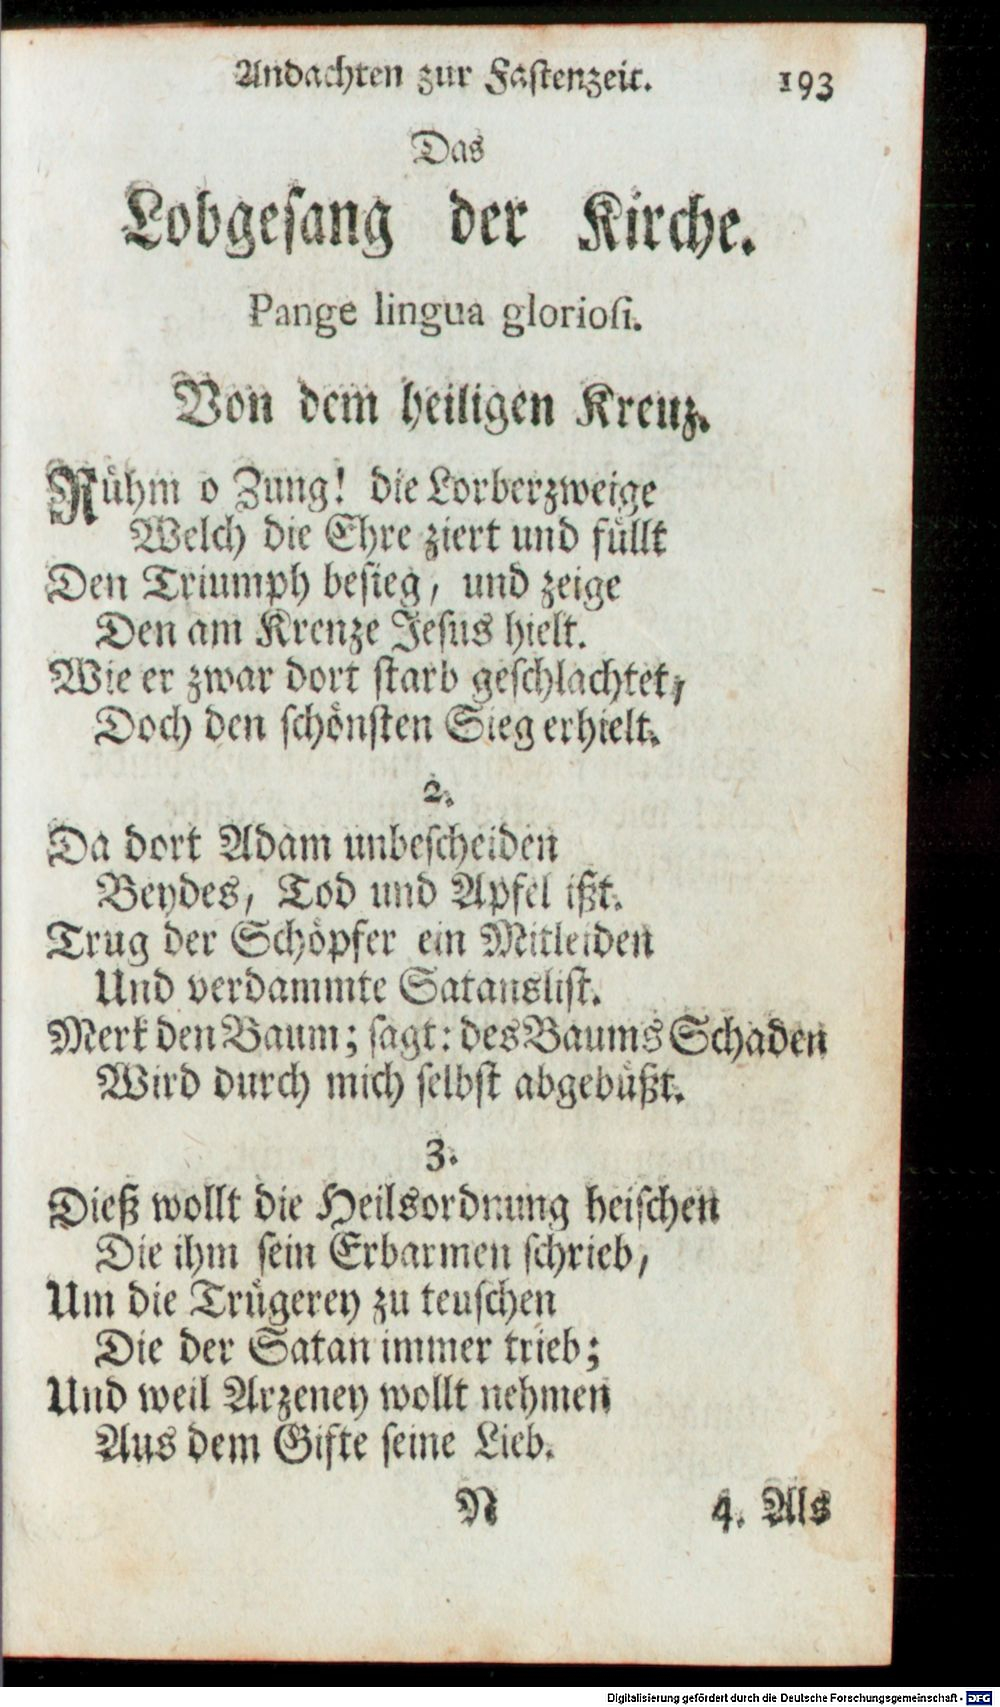 Andachten zur Fastenzeit. 193
Das
Lobgesang der Kirche.
Pange lingua gloriosi.
Von dem heiligen Kreuz.
Rühm o Zung! die Lorberzweige
Welch die Ehre ziert und füllt
Den Triumph besieg, und zeige
Den am Kreuze Jesus hielt.
Wie er zwar dort starb geschlachtet,
Doch den schönsten Sieg erhielt.
2.
Da dort Adam unbescheiden
Beydes, Tod und Apfel ißt.
Trug der Schöpfer ein Mitleiden
Und verdammte Satanslist.
Merk den Baum; sagt: des Baums Schaden
Wird durch mich selbst abgebüßt.
3.
Dieß wollt die Heilsordnung heischen
Die ihm sein Erbarmen schrieb,
Um die Trügerey zu teuschen
Die der Satan immer trieb;
Und weil Arzeney wollt nehmen
Aus dem Gifte seine Lieb.
N 4. Als
Digitalisierung gefördert durch die Deutsche Forschungsgemeinschaft - DFG